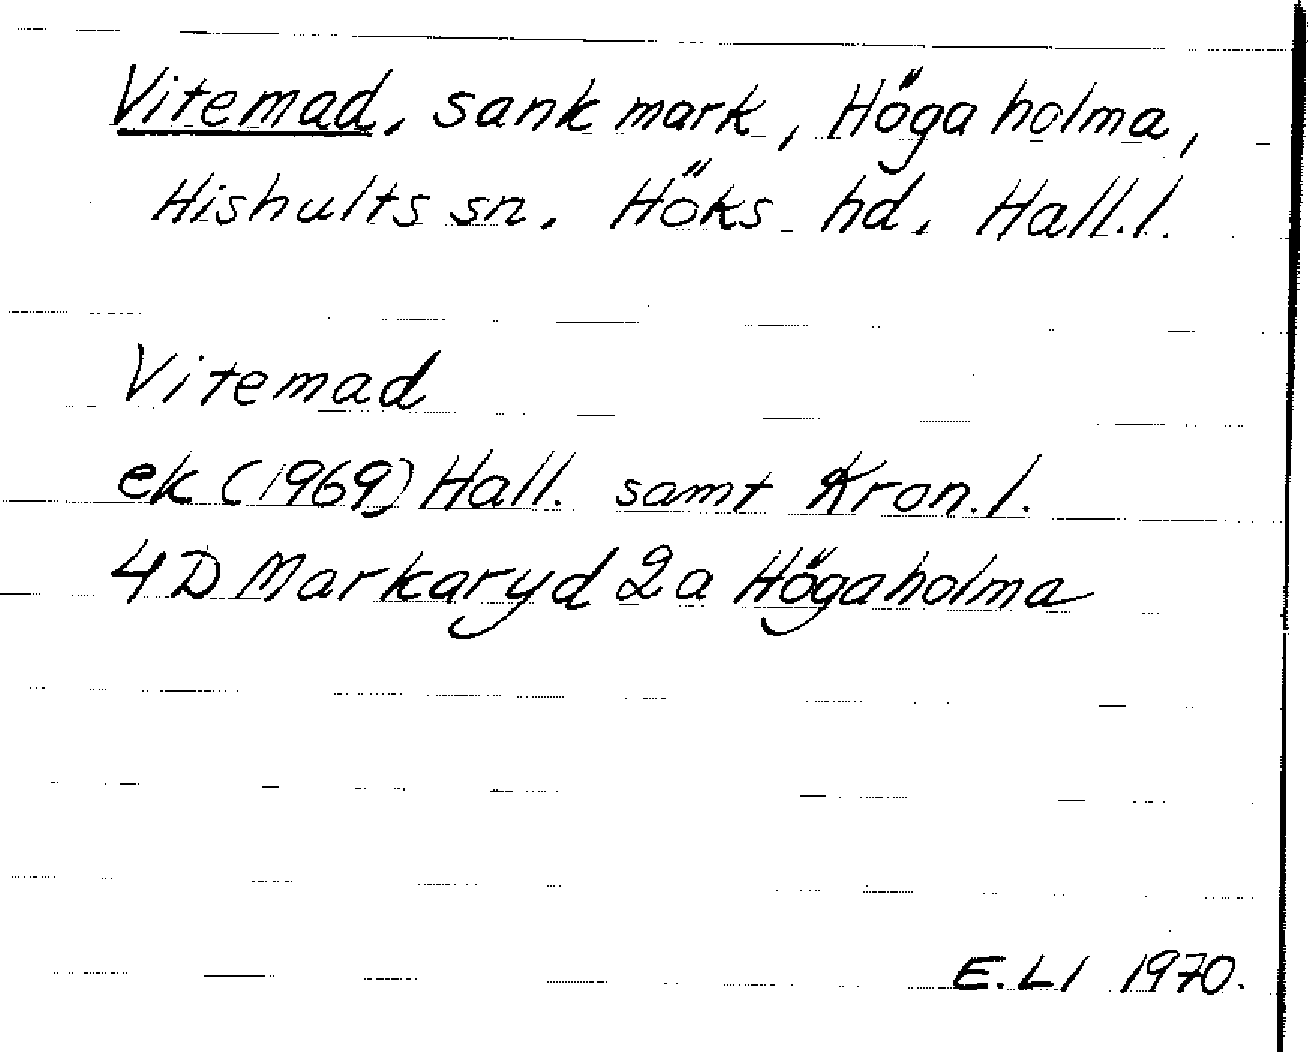 Vitemad, sank mark, Högaholma,
Hishults sn. Höks hd. Hall.l.
Vitemad
ek (1969) Hall. samt Kron.l.
4D Markaryd 2a Högaholma
E.Ll 1970.